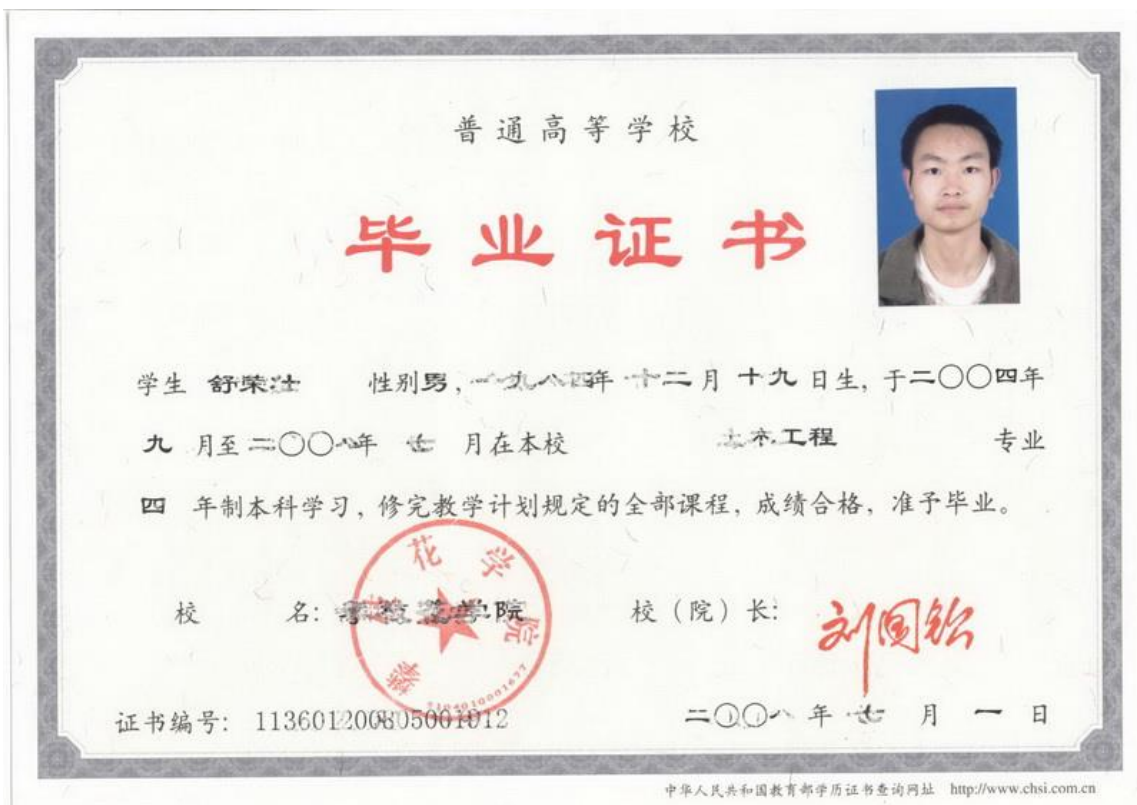 普通高等学校
毕业证书
学生 舒荣仕 性别男，一九八四年 十二月 十九日生，于二〇〇四年
九 月至二〇〇八年 七 月在本校 土木工程 专业
四 年制本科学习，修完教学计划规定的全部课程，成绩合格，准予毕业。
校 名：攀枝花学院 校（院）长：刘国钦
攀枝花学院
5104010001677
证书编号：113601200805001912 二〇〇八年 七 月 一 日
中华人民共和国教育部学历证书查询网址 http://www.chsi.com.cn